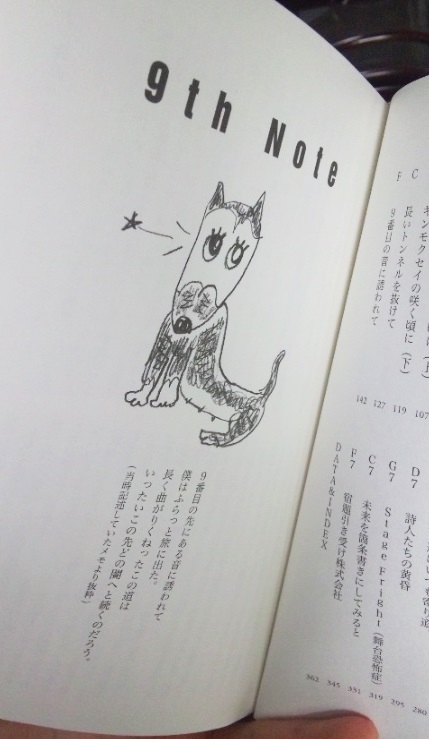 9th Note
9番目の先にある音に誘われて
僕はふらっと旅に出た。
長く曲がりくねったこの道は
いったいこの先どの闇へと続くのだろう。
(当時記述していたメモより抜粋)
C
F
キンモクセイの咲く頃に(下)
長いトンネルを抜けて
9番目の音に誘われて
107
119
127
142
D7 詩人たちの黄昏
G7 Stage Fright(舞台恐怖症)
C7 未来を箇条書きにしてみると
F7 宿題引き受け株式会社
DATA&INDEX
280
295
319
331
345
362